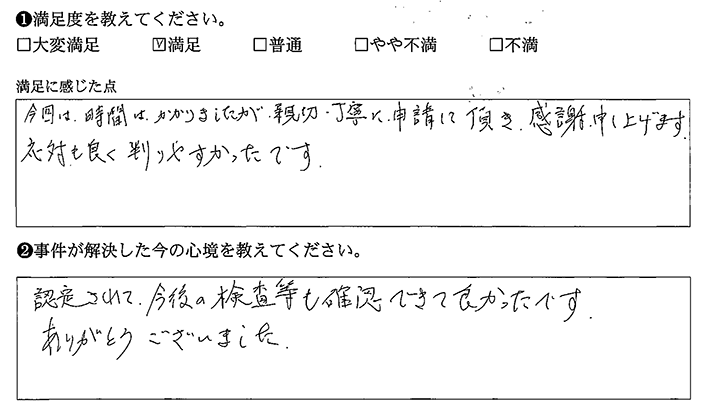 ❶満足度を教えてください。
□大変満足 ☑満足 □普通 □やや不満 □不満
満足に感じた点
今回は、時間は、かかりましたが、親切・丁寧に、申請して頂き、感謝、申し上げます。
応対も良く判りやすかったです。
❷事件が解決した今の心境を教えてください。
認定されて、今後の検査等も確認できて良かったです。
ありがとうございました。